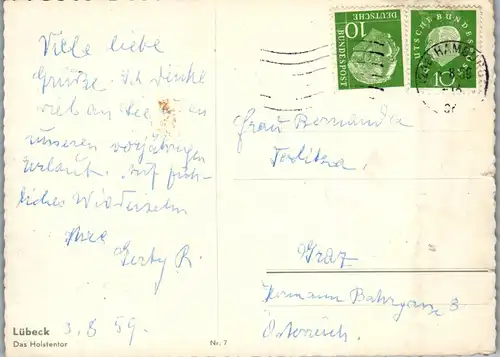 Viele liebe
Grüße. Ich denke
viel an Sie u. an
unseren vorjährigen
Urlaub. Auf fröh-
liches Wiedersehn
Ihre
Gerty R.
Lübeck 3.8.59.
Das Holstentor
Nr. 7
10
DEUTSCHE
BUNDESPOST
10
HAMBURG
Frau Bernarda
Terlitza
Graz
Hermann Bahrgasse 3
Österreich.